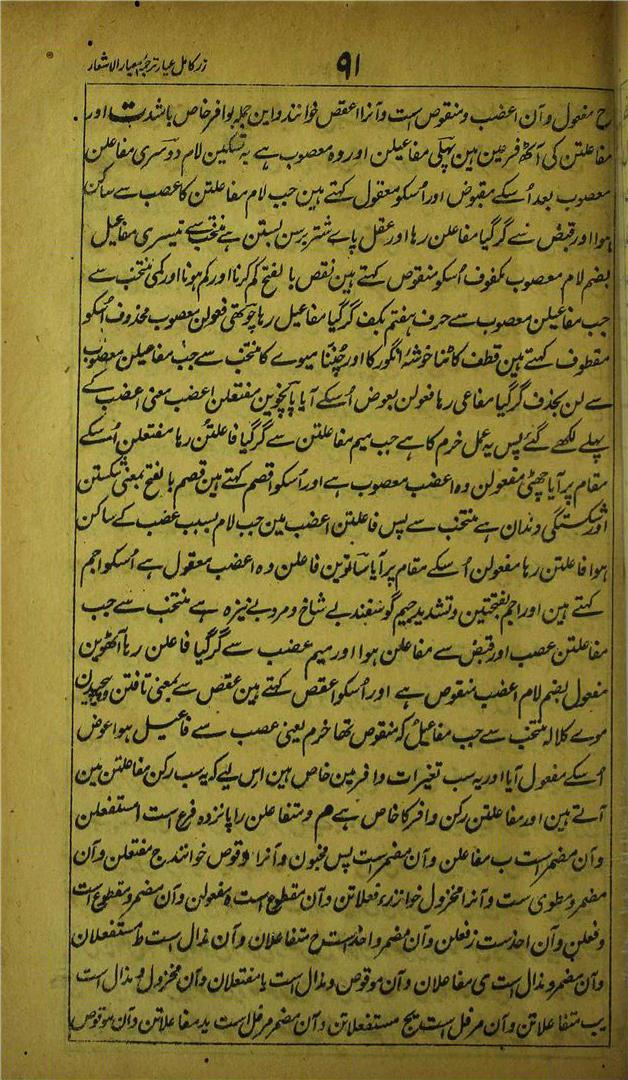 ۹۱
زر کامل عیار ترجمہ معیار الاشعار
ح مفعول وآن اعضب و منقوص است وآنرا اعقص خوانند واین جملہ بوافر خاص باشد ت اور
مفاعلتن کی آٹھ فرعین ہین پہلی مفاعیلن اور وہ معصوب ہے بہ تسکین لام دوسری مفاعلن
معصوب بعد اُسکے مقبوض اور اُسکو معقول کہتے ہین جب لام مفاعلتن کا عصب سے ساکن
ہوا اور قبض نے گر گیا مفاعلن رہا اور عقل پاے شتر برسن بستن ہے منتخب سے تیسری مفاعیل
بضم لام معصوب مکفوف اُسکو منقوص کہتے ہین نقص بالفتح کم کرنا اور کم ہونا اور کمی منتخب سے
جب مفاعیلن معصوب سے حرف ہفتم بکف گر گیا مفاعیل رہا چوتھی فعولن معصوب محذوف اُسکو
مقطوف کہتے ہین قطف کاٹنا خوشۂ انگور کا اور چُننا میوے کا منتخب سے جب مفاعیلن معصوب
سے لن بحذف گر گیا مفاعی رہا فعولن بعوض اُسکے آیا پانچوین مفتعلن اعضب معنی اعضب کے
پہلے لکھے گئے پس یہ عمل خرم کا ہے جب میم مفاعلتن سے گر گیا فاعلتن رہا مفتعلن اُسکے
مقام پر آیا چھٹی مفعولن وہ اعضب معصوب ہے اور اُسکو اقصم کہتے ہین قصم بالفتح بمعنی شکستن
اور شکستگی دندان ہے منتخب سے پس فاعلتن اعضب مین جب لام بسبب عصب کے ساکن
ہوا فاعلتن رہا مفعولن اُسکے مقام پر آیا ساتوین فاعلن وہ اعضب معقول ہے اُسکو اجم
کہتے ہین اور اجم بفتحتین و تشدید جیم گوسفند بے شاخ و مرد بے نیزہ ہے منتخب سے جب
مفاعلتن عصب اور قبض سے مفاعلن ہوا اور میم عضب سے گر گیا فاعلن رہا آٹھوین
مفعول بضم لام اعضب منقوص ہے اور اُسکو اعقص کہتے ہین عقص سے بمعنی تافتن و پیچیدن
موے کلالہ منتخب سے جب مفاعیلُ کہ منقوص تھا خرم یعنی عصب سے فاعیل ہوا عوض
اُسکے مفعول آیا اور یہ سب تغیرات وافر مین خاص ہین اس لیے کہ یہ سب رکن مفاعلتن مین
آتے ہین اور مفاعلتن رکن وافر کا خاص ہے م و متفاعلن را پانزدہ فرع است ا مستفعلن
وآن مضمر است ب مفاعلن وآن مضمر است پس مخبون وآنرا موقوص خوانند ج مفتعلن وآن
مضمر و مطوی ست وآنرا مخزول خوانند د فعلاتن وآن مقطوع است ہ مفعولن وآن مضمر و مقطوع است
و فعلن وآن احذ ست ز فعلن وآن مضمر و احذ ست ح متفاعلان وآن مذال است ط مستفعلان
وآن مضمر و مذال است ی مفاعلان وآن موقوص و مذال است یا مفتعلان وآن مخزول و مذال است
یب متفاعلاتن وآن مرفل است یج مستفعلاتن وآن مضمر مرفل است ید مفاعلاتن وآن موقوص